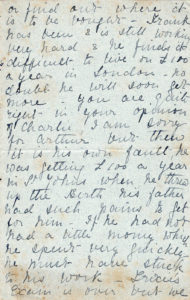 or find out where it
is to be bought - Frank
has been & is still working
very hard & he finds it
difficult to live on £100
a year in London - no
doubt he will soon get
more - you are quite
right in your opinion
of Charlie I am sorry
for Arthur but then
it is his own fault he
was getting £100 a year
in St Johns when he threw
up the Berth his father
had such pains to get
for him If he had not
had a little money which
he spent very quickly
he must have stuck
to his work -
Exam is over but we